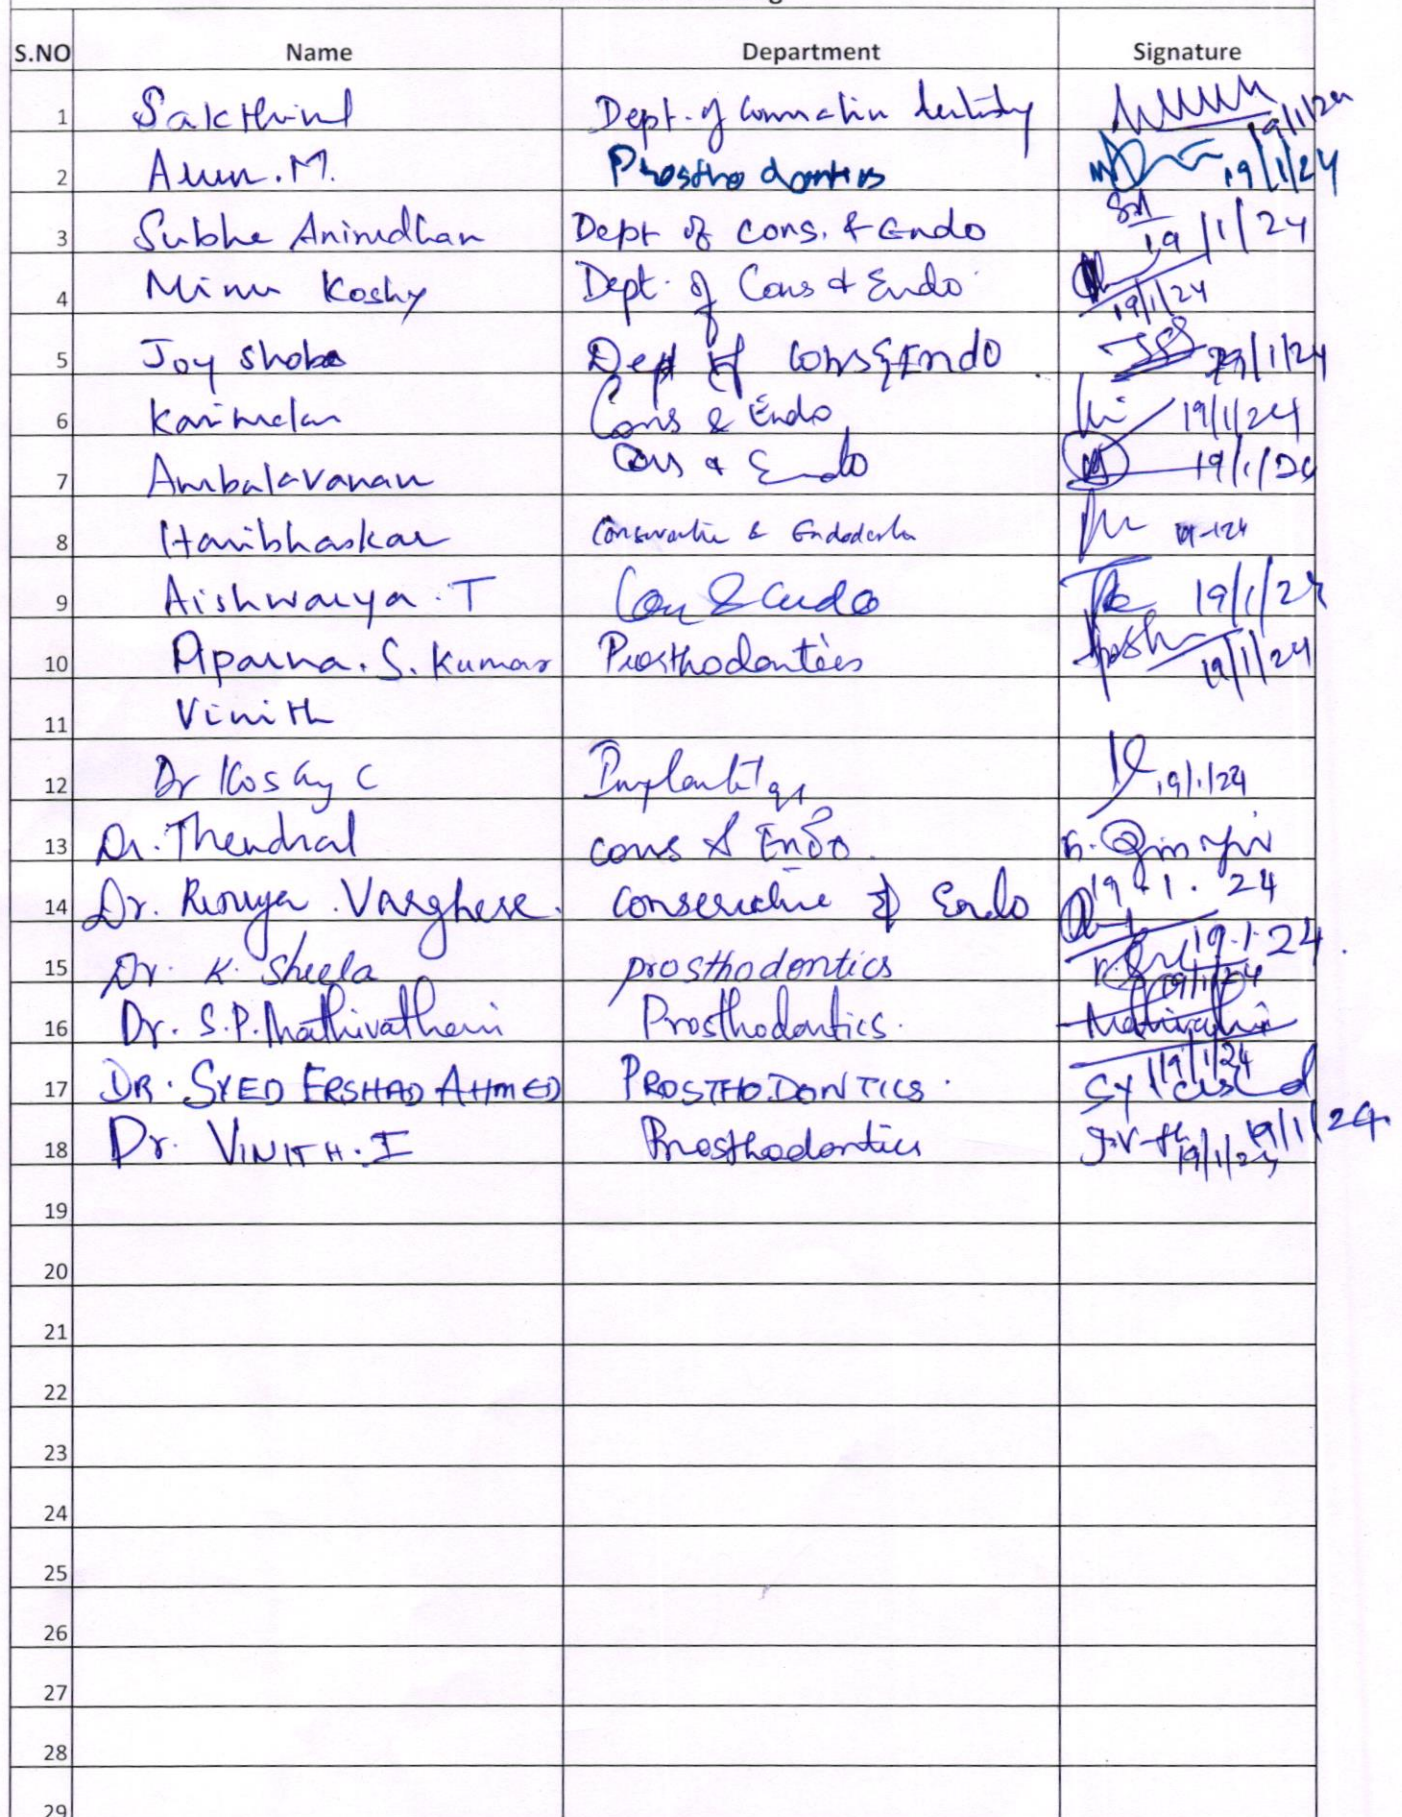 S.NO Name Department Signature
1 Sakthivel Dept. of dentistry 19/1/24
2 Arun.M. Prosthodontics 19/1/24
3 Subha Anirudhan Dept of Cons. & Endo 19/1/24
4 Minu Koshy Dept. of Cons & Endo 19/1/24
5 Joy Shoba Dept of Cons & Endo 19/1/24
6 Karimalan Cons & Endo 19/1/24
7 Ambalavanan Cons & Endo 19/1/24
8 Haribhaskar Conservative &
9 Aishwarya.T Cons & Endo 19/1/24
10 Aparna.S.Kumar Prosthodontics 19/1/24
11 Vinith
12 Dr Koshy C 19/1/24
13 Dr. Thendral Cons & Endo
14 Dr. Varghese. Conservative & Endo 19.1.24
15 Dr. K. Sheela prosthodontics 19.1.24
16 Dr. S.P. Mathivathani Prosthodontics. 19/1/24
17 DR. SYED ERSHAD AHMED PROSTHODONTICS. 19/1/24
18 Dr. VINITH.I Prosthodontics 19/1/24
19
20
21
22
23
24
25
26
27
28
29